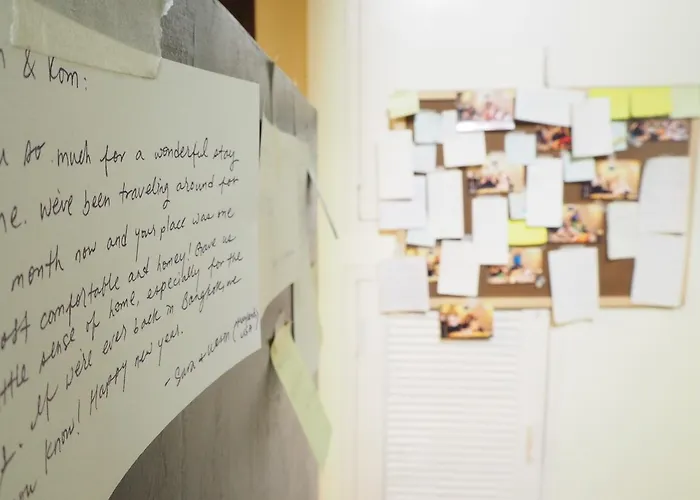 & Kom:
so much for a wonderful stay
we've been traveling around for
month now and your place was one
comfortable and homey! Gave us
sense of home, especially for the
If we're ever back in Bangkok we
know! Happy new year.
- Sara & (
USA)